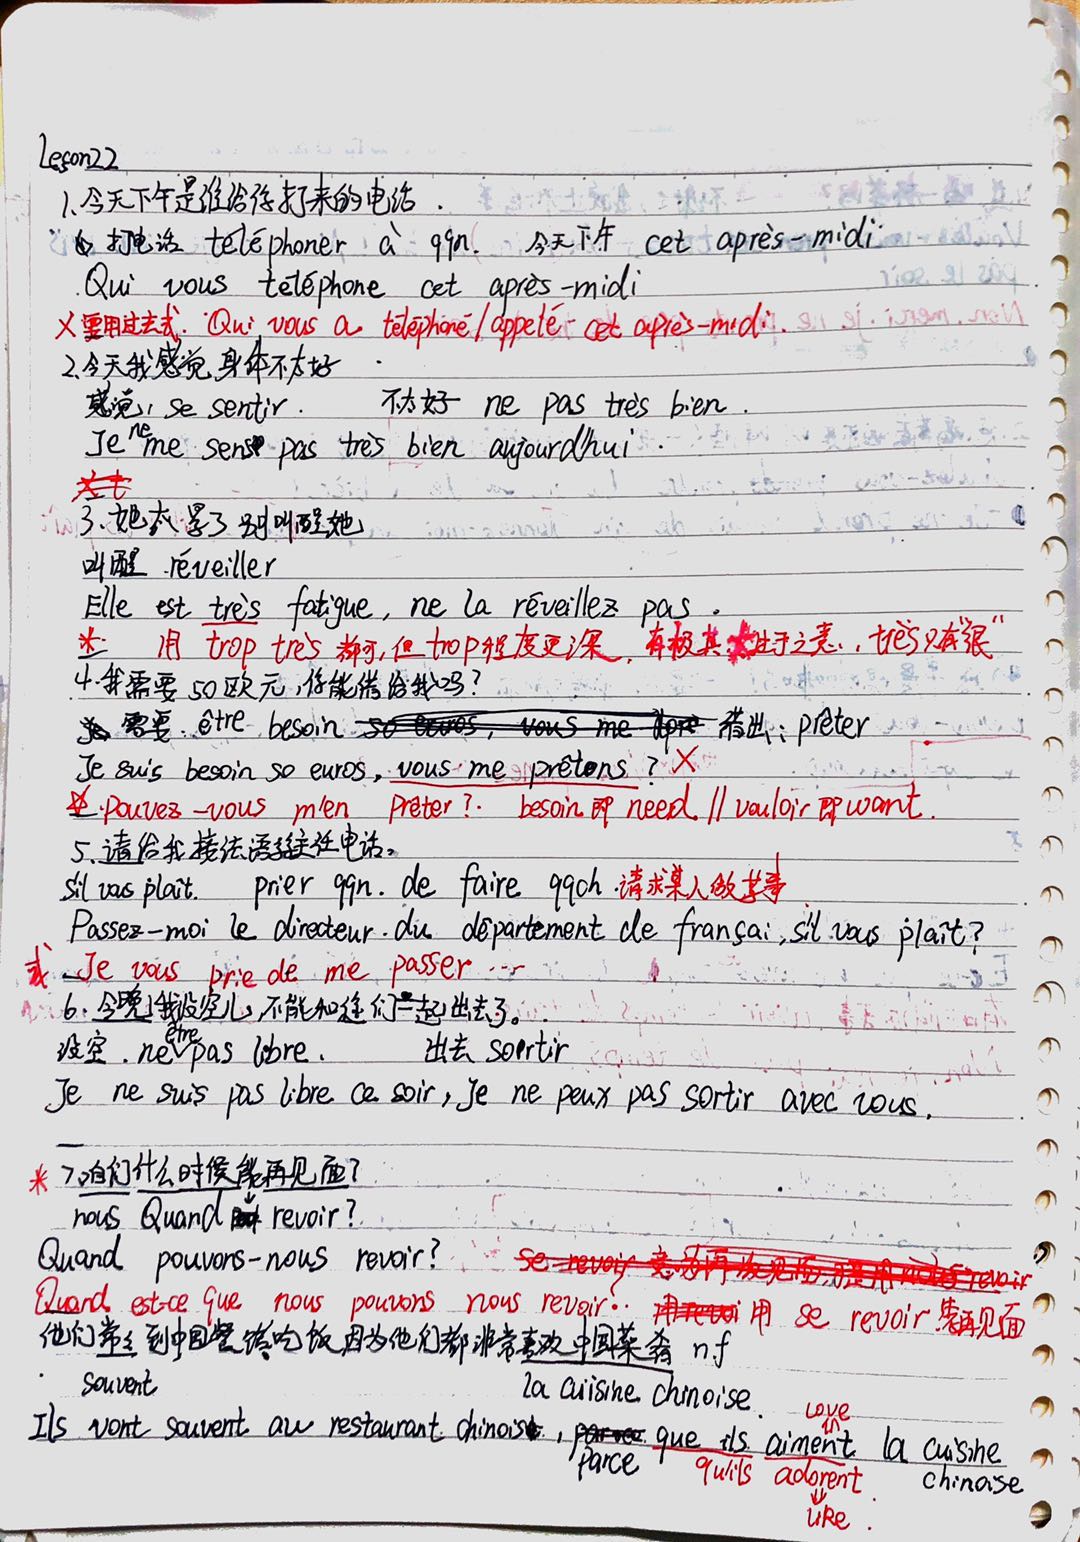 Leçon22
1.今天下午是谁给你打来的电话.
打电话 téléphoner à qqn. 今天下午 cet après-midi
Qui vous téléphone cet après-midi
X 要用过去式. Qui vous a téléphoné/appelé cet après-midi.
2.今天我感觉身体不太好
感觉, se sentir. 不太好 ne pas très bien.
Je ne me sens pas très bien aujourdhui.
3.她太累了别叫醒她
叫醒 réveiller
Elle est très fatigue, ne la réveillez pas.
* 用 trop très 都可,但trop程度更深, 有极其、过于之意., très只有"很"
4.我需要50欧元,你能借给我吗?
需要. être besoin 借出: prêter
Je suis besoin 50 euros, vous me prêtons? X
* pouvez-vous m'en prêter?. besoin即need.// vouloir即want.
5.请给我接法语系主任电话。
S'il vous plaît. prier qqn. de faire qqch.请求某人做某事
Passez-moi le directeur du département de françai, s'il vous plaît?
或 Je vous prie de me passer ...
6.今晚我没空儿,不能和你们一起出去了。
没空. ne être pas libre. 出去 sortir
Je ne suis pas libre ce soir, Je ne peux pas sortir avec vous.
* 7.咱们什么时候能再见面?
nous Quand revoir?
Quand pouvons-nous revoir?
Quand est-ce que nous pouvons nous revoir? 用 se revoir 表再见面
他们常常到中国餐馆吃饭因为他们都非常喜欢中国菜 nf
souvent la cuisine chinoise.
Love
Ils vont souvent au restaurant chinois, parce que ils aiment la cuisine chinoise
qu'ils adorent.
like.